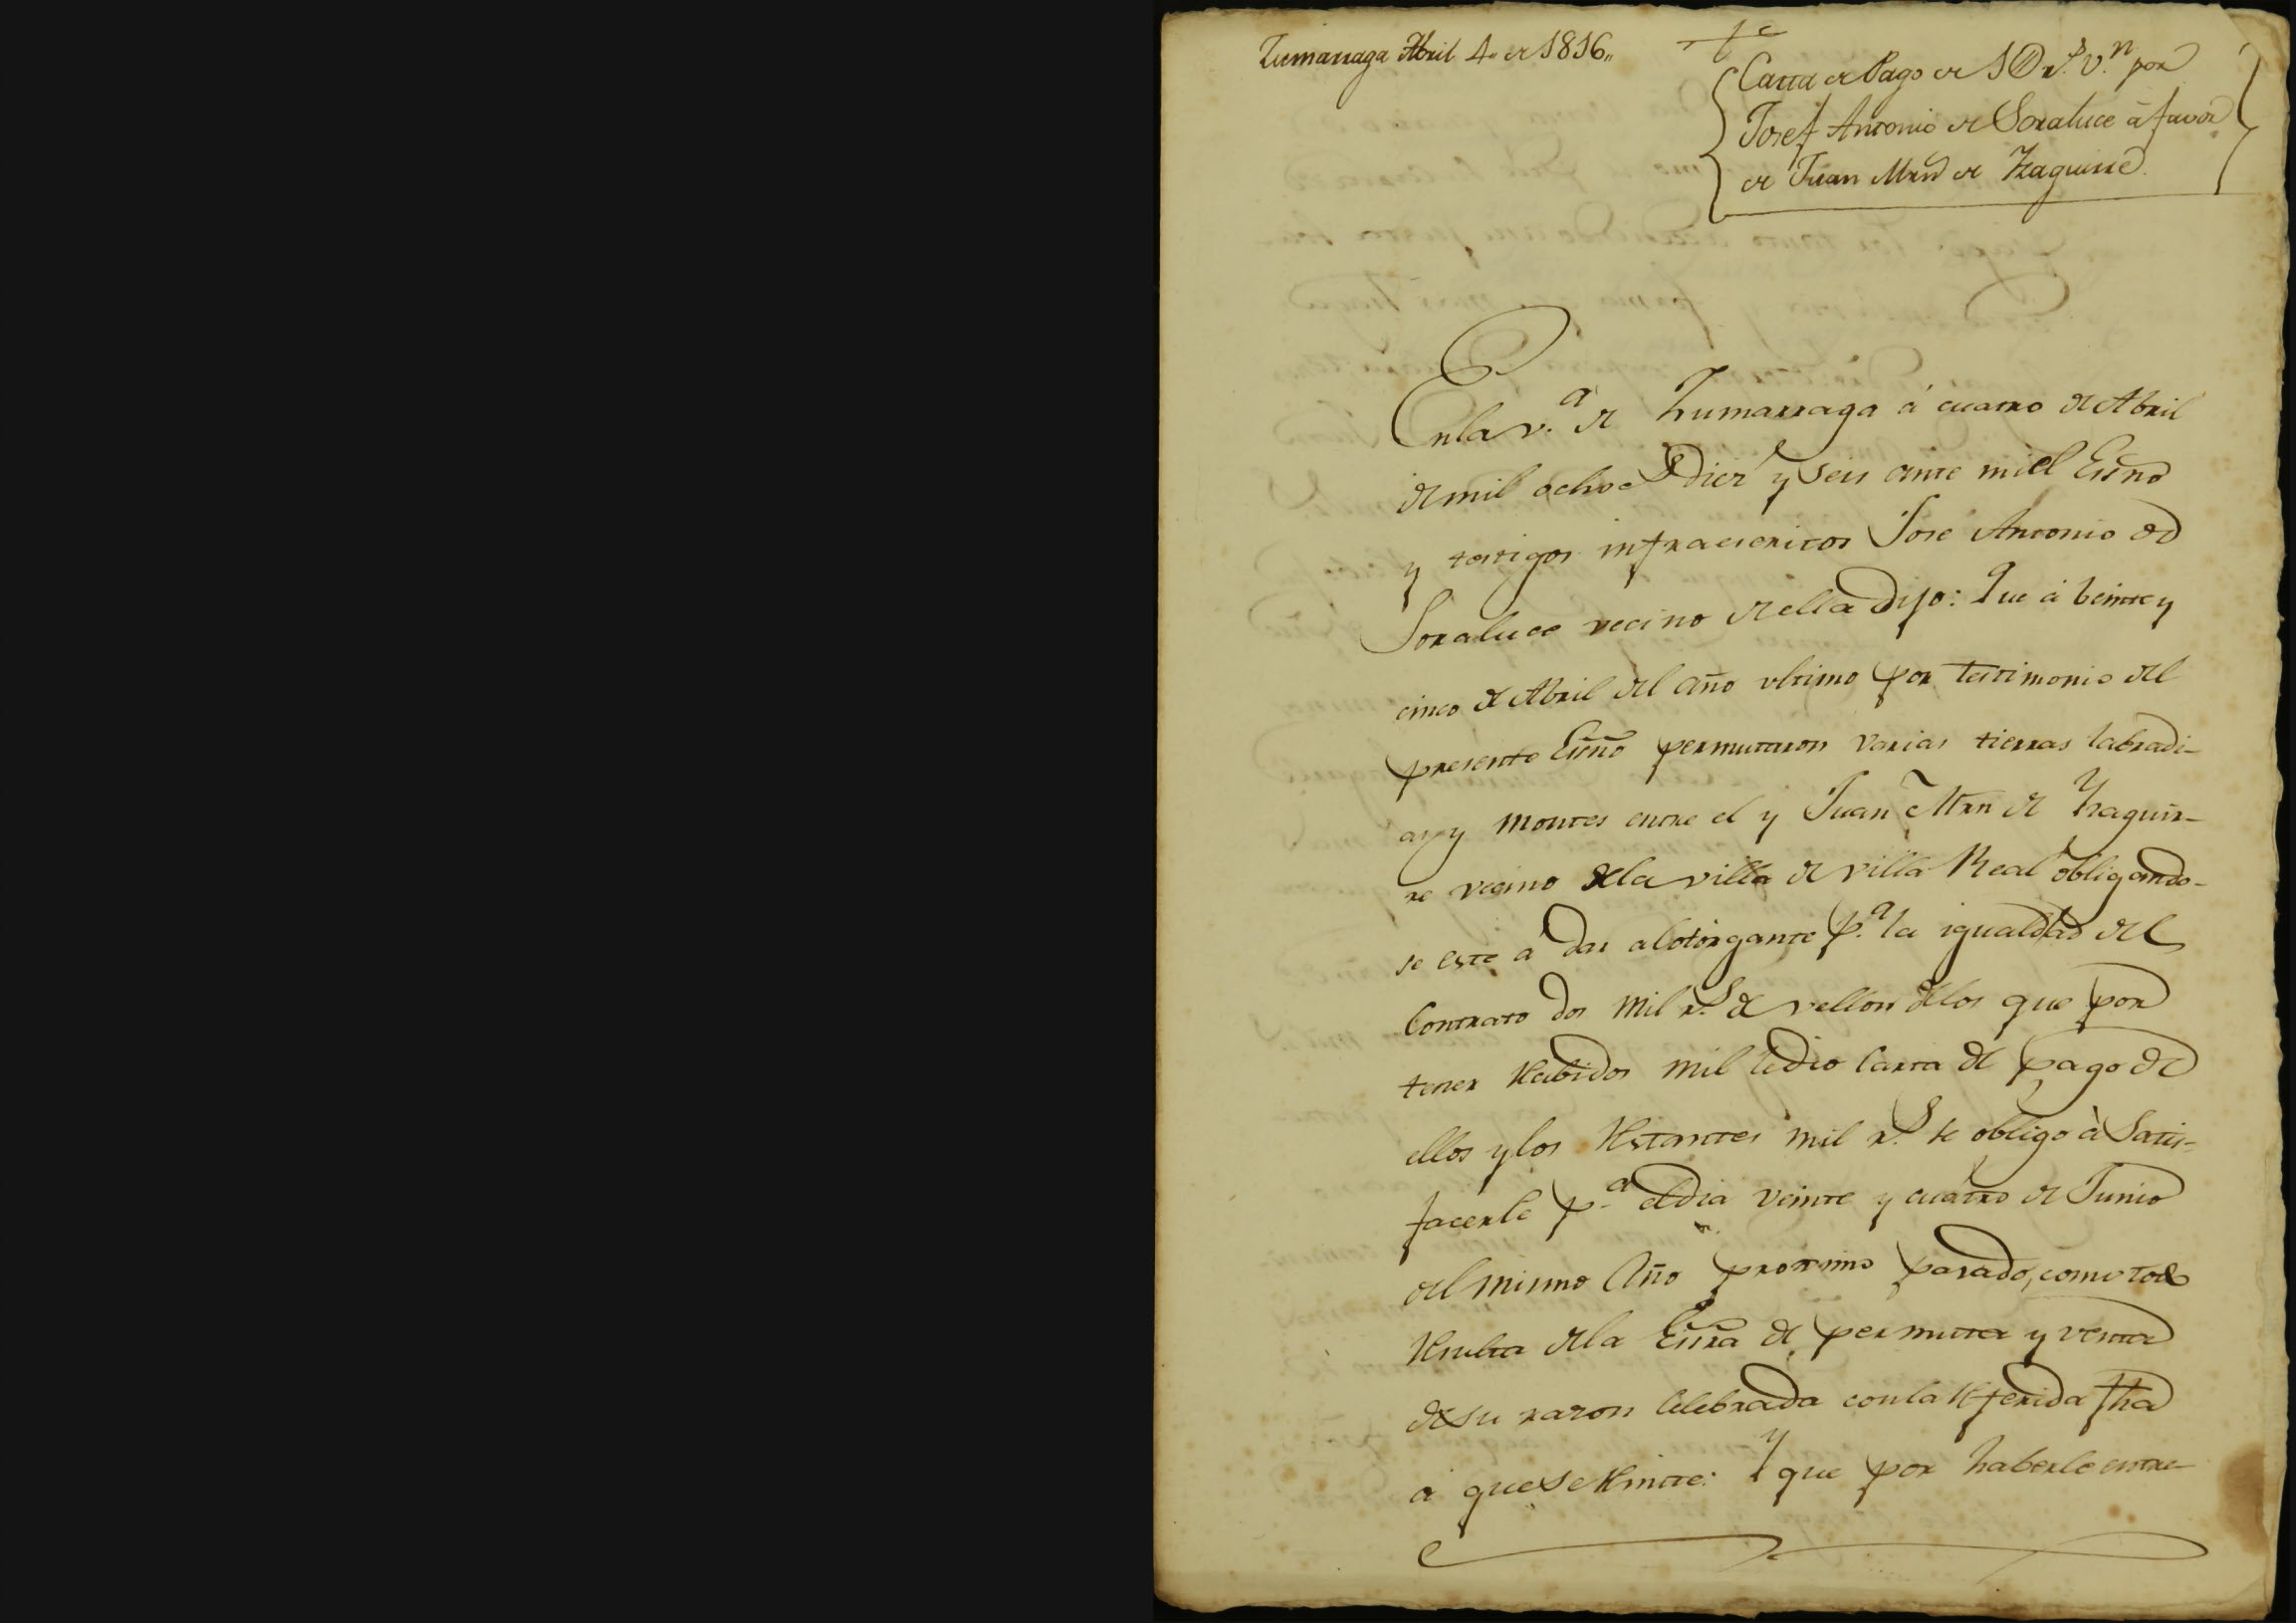 Zumarraga Abril 4,, de 1816,,
Carta de Pago de 1 D r.s v.n por
Josef Antonio de Soraluce à favor
de Juan Mrn de Yzaguirre.
En la v.a de Zumarraga á cuatro de Abril
de mil ochoc.s diez y seis ante mi el Essno
y testigos infraescritos José Antonio de
Soraluce vecino de ella Dijo: Que á beinte y
cinco de Abril del año ultimo por testimonio del
presente Essno permutaron varias tierras labradi-
as y montes entre el y Juan Mrn de Yzaguir-
re vecino de la villa de villa Real obligando-
se este á dar al otorgante p.a la igualdad del
Contrato dos mil r.s de vellon de los que por
tener Rebidos mil le dio Carta de pago de
ellos y los Restantes mil r.s se obligo à Satis-
facerle p.a el dia veinte y cuatro de Junio
del mismo Año proximo pasado, como todo
Resulta de la Essra de permuta y venta
de su razon Celebrada con la Referida fha
a que se Remite: Y que por haberle entre-